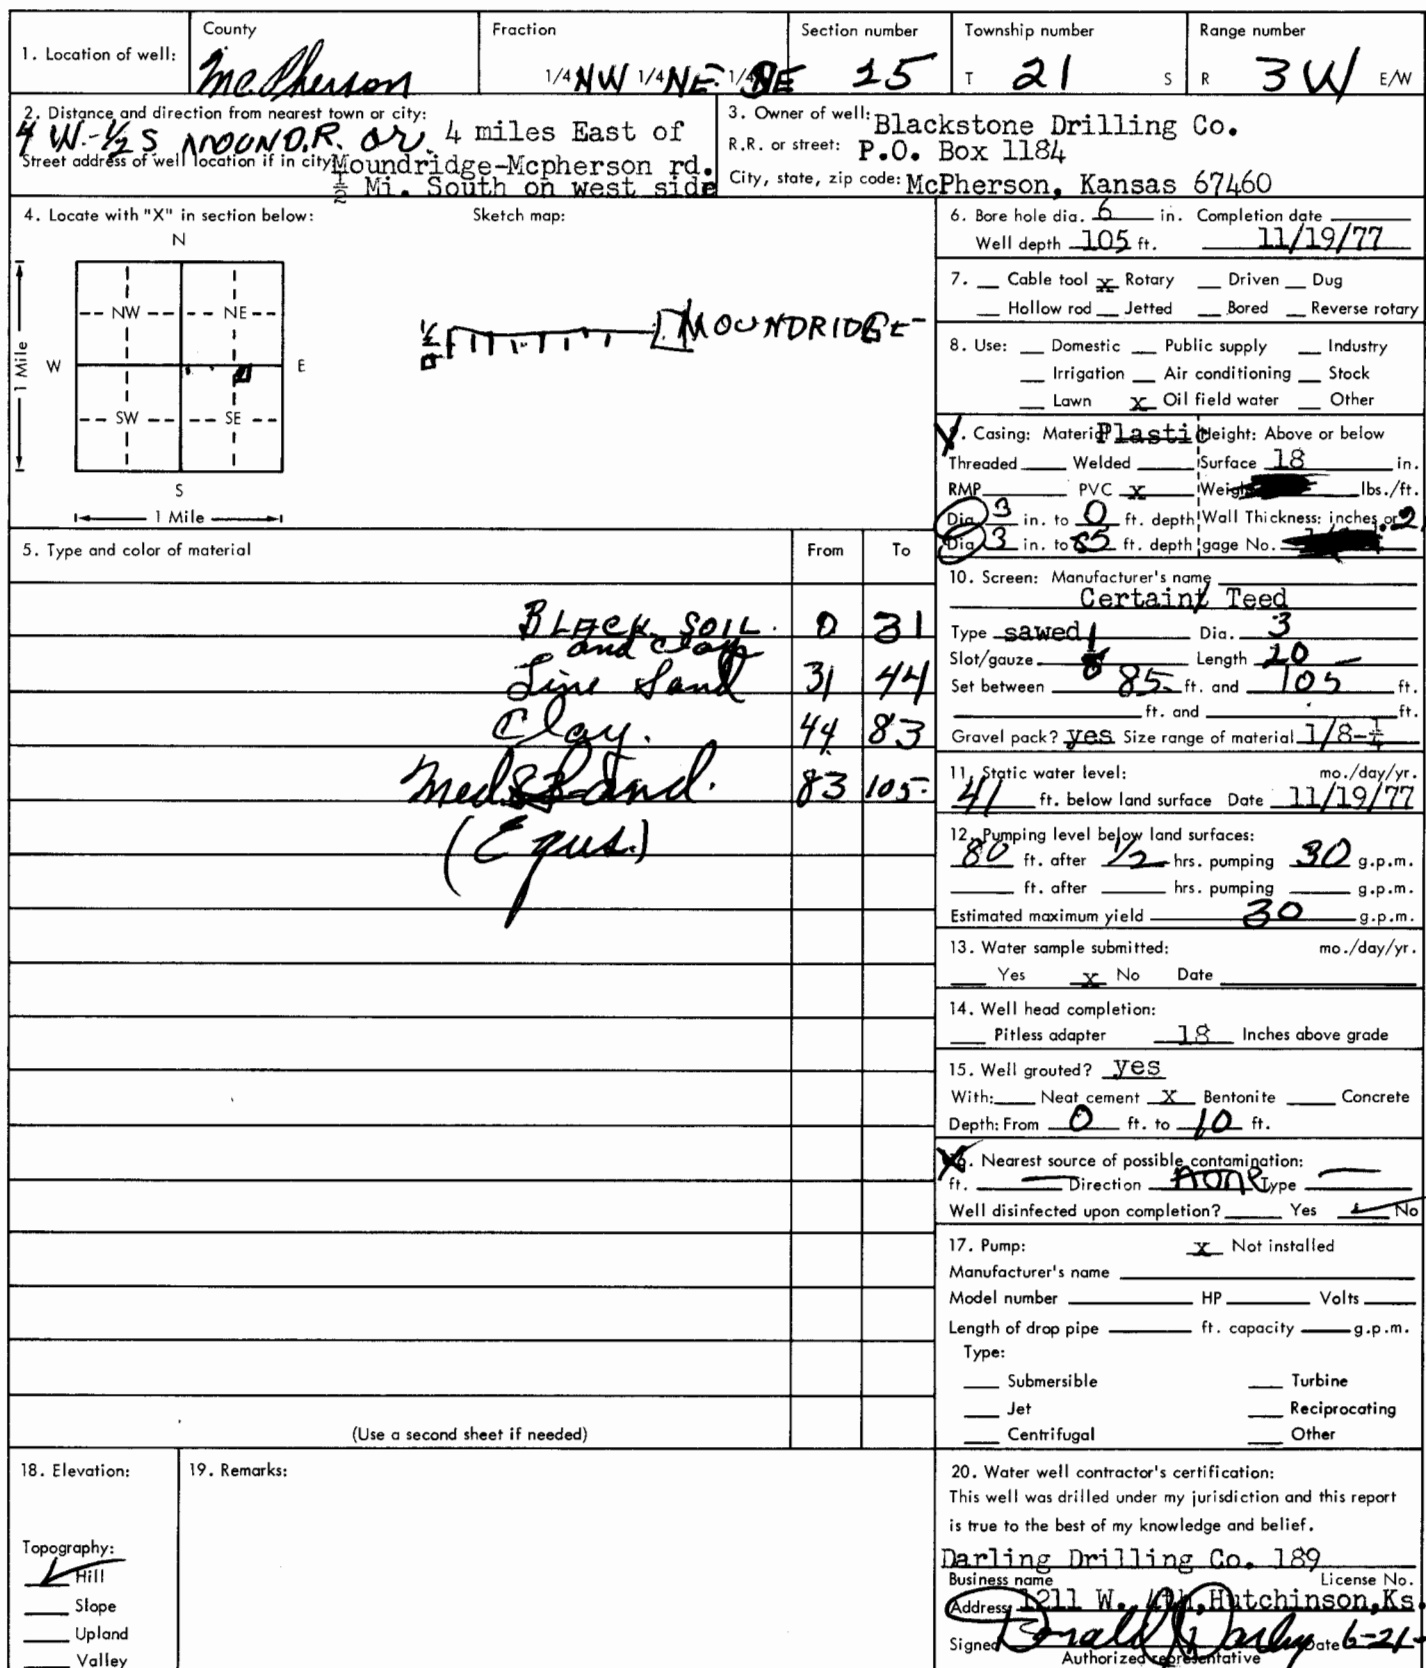 1. Location of well:
County
McPherson
Fraction
1/4 NW 1/4 NE 1/4 SE
Section number
25
Township number
T 21 S
Range number
R 3W E/W
2. Distance and direction from nearest town or city:
4 W.-½ S MOUND.R. or. 4 miles East of
Street address of well location if in city: Moundridge-Mcpherson rd.
½ Mi. South on west side
3. Owner of well: Blackstone Drilling Co.
R.R. or street: P.O. Box 1184
City, state, zip code: McPherson, Kansas 67460
4. Locate with "X" in section below:
Sketch map:
N
NW NE
W E
SW SE
S
1 Mile
1 Mile
½
MOUNDRIDGE
5. Type and color of material From To
BLACK SOIL. 0 31
and clay
Fine Sand 31 44
Clay. 44 83
Med. Sand. 83 105
(Equs.)
(Use a second sheet if needed)
6. Bore hole dia. 6 in. Completion date
Well depth 105 ft. 11/19/77
7. Cable tool x Rotary Driven Dug
Hollow rod Jetted Bored Reverse rotary
8. Use: Domestic Public supply Industry
Irrigation Air conditioning Stock
Lawn x Oil field water Other
9. Casing: Material Plastic Height: Above or below
Threaded Welded Surface 18 in.
RMP PVC x Weight lbs./ft.
Dia. 3 in. to 0 ft. depth Wall Thickness: inches or .2
Dia. 3 in. to 85 ft. depth gage No.
10. Screen: Manufacturer's name
Certain Teed
Type sawed Dia. 3
Slot/gauze Length 20
Set between 85 ft. and 105 ft.
ft. and ft.
Gravel pack? yes Size range of material 1/8-¼
11. Static water level: mo./day/yr.
41 ft. below land surface Date 11/19/77
12. Pumping level below land surfaces:
80 ft. after 1/2 hrs. pumping 30 g.p.m.
ft. after hrs. pumping g.p.m.
Estimated maximum yield 30 g.p.m.
13. Water sample submitted: mo./day/yr.
Yes x No Date
14. Well head completion:
Pitless adapter 18 Inches above grade
15. Well grouted? yes
With: Neat cement X Bentonite Concrete
Depth: From 0 ft. to 10 ft.
16. Nearest source of possible contamination:
ft. — Direction none Type —
Well disinfected upon completion? Yes ✓ No
17. Pump: x Not installed
Manufacturer's name
Model number HP Volts
Length of drop pipe ft. capacity g.p.m.
Type:
Submersible Turbine
Jet Reciprocating
Centrifugal Other
18. Elevation:
Topography:
✓ Hill
Slope
Upland
Valley
19. Remarks:
20. Water well contractor's certification:
This well was drilled under my jurisdiction and this report
is true to the best of my knowledge and belief.
Darling Drilling Co. 189
Business name License No.
Address 1211 W. 4th, Hutchinson, Ks.
Signed Date 6-21-
Authorized representative